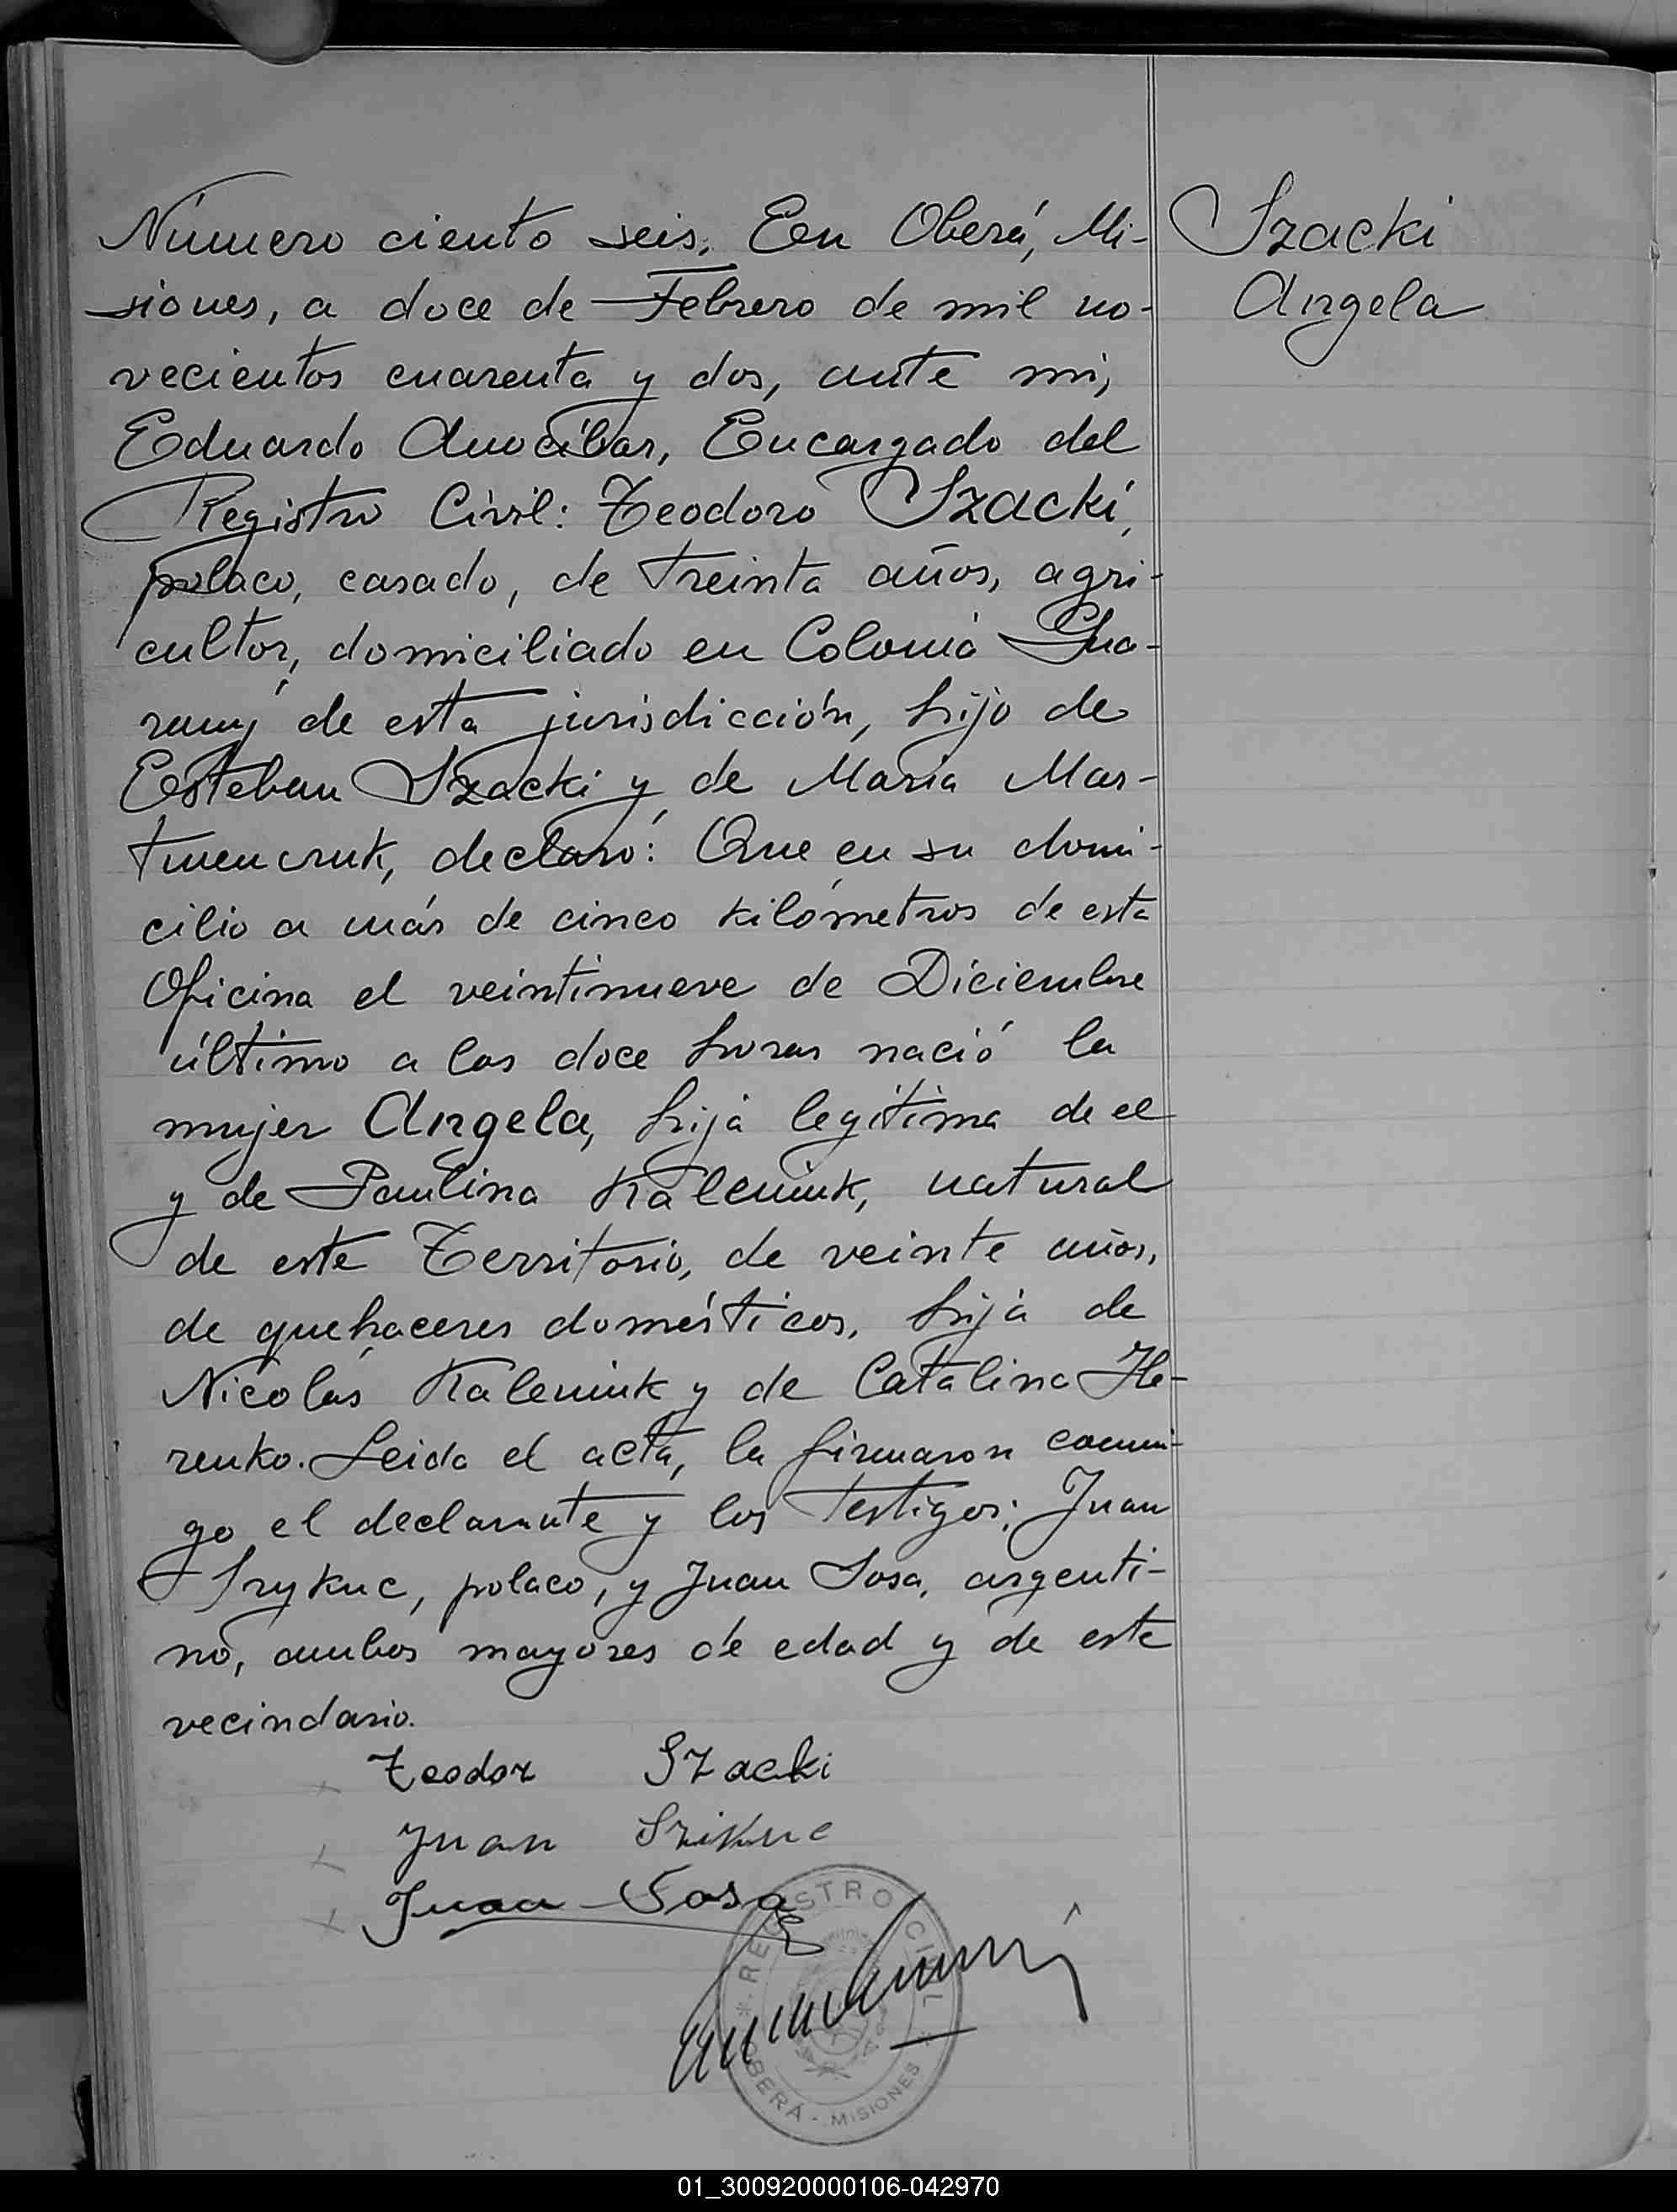 Número ciento seis. En Oberá, Mi-
siones, a doce de Febrero de mil no-
vecientos cuarenta y dos, ante mi,
Eduardo Anocíbar, Encargado del
Registro Civil: Teodoro Szacki,
polaco, casado, de treinta años, agri-
cultor, domiciliado en Colonia Gua-
rany de esta jurisdicción, hijo de
Esteban Szacki y de Maria
declaró: Que en su domi-
cilio a más de cinco kilómetros de esta
Oficina el veintinueve de Diciembre
último a las doce horas nació la
mujer Angela, hija legítima de el
y de Paulina Kaleniuk, natural
de este Territorio, de veinte años,
de quehaceres domésticos, hija de
Nicolás Kaleniuk y de Catalina
Leida el acta, la firmaron conmi-
go el declarante y los testigos: Juan
Szykuc, polaco, y Juan Sosa, argenti-
no, ambos mayores de edad y de este
vecindario.
Teodor Szacki
Juan Szikuc
Juan Sosa
REGISTRO CIVIL
OBERÁ - MISIONES
Szacki
Angela
01_300920000106-042970